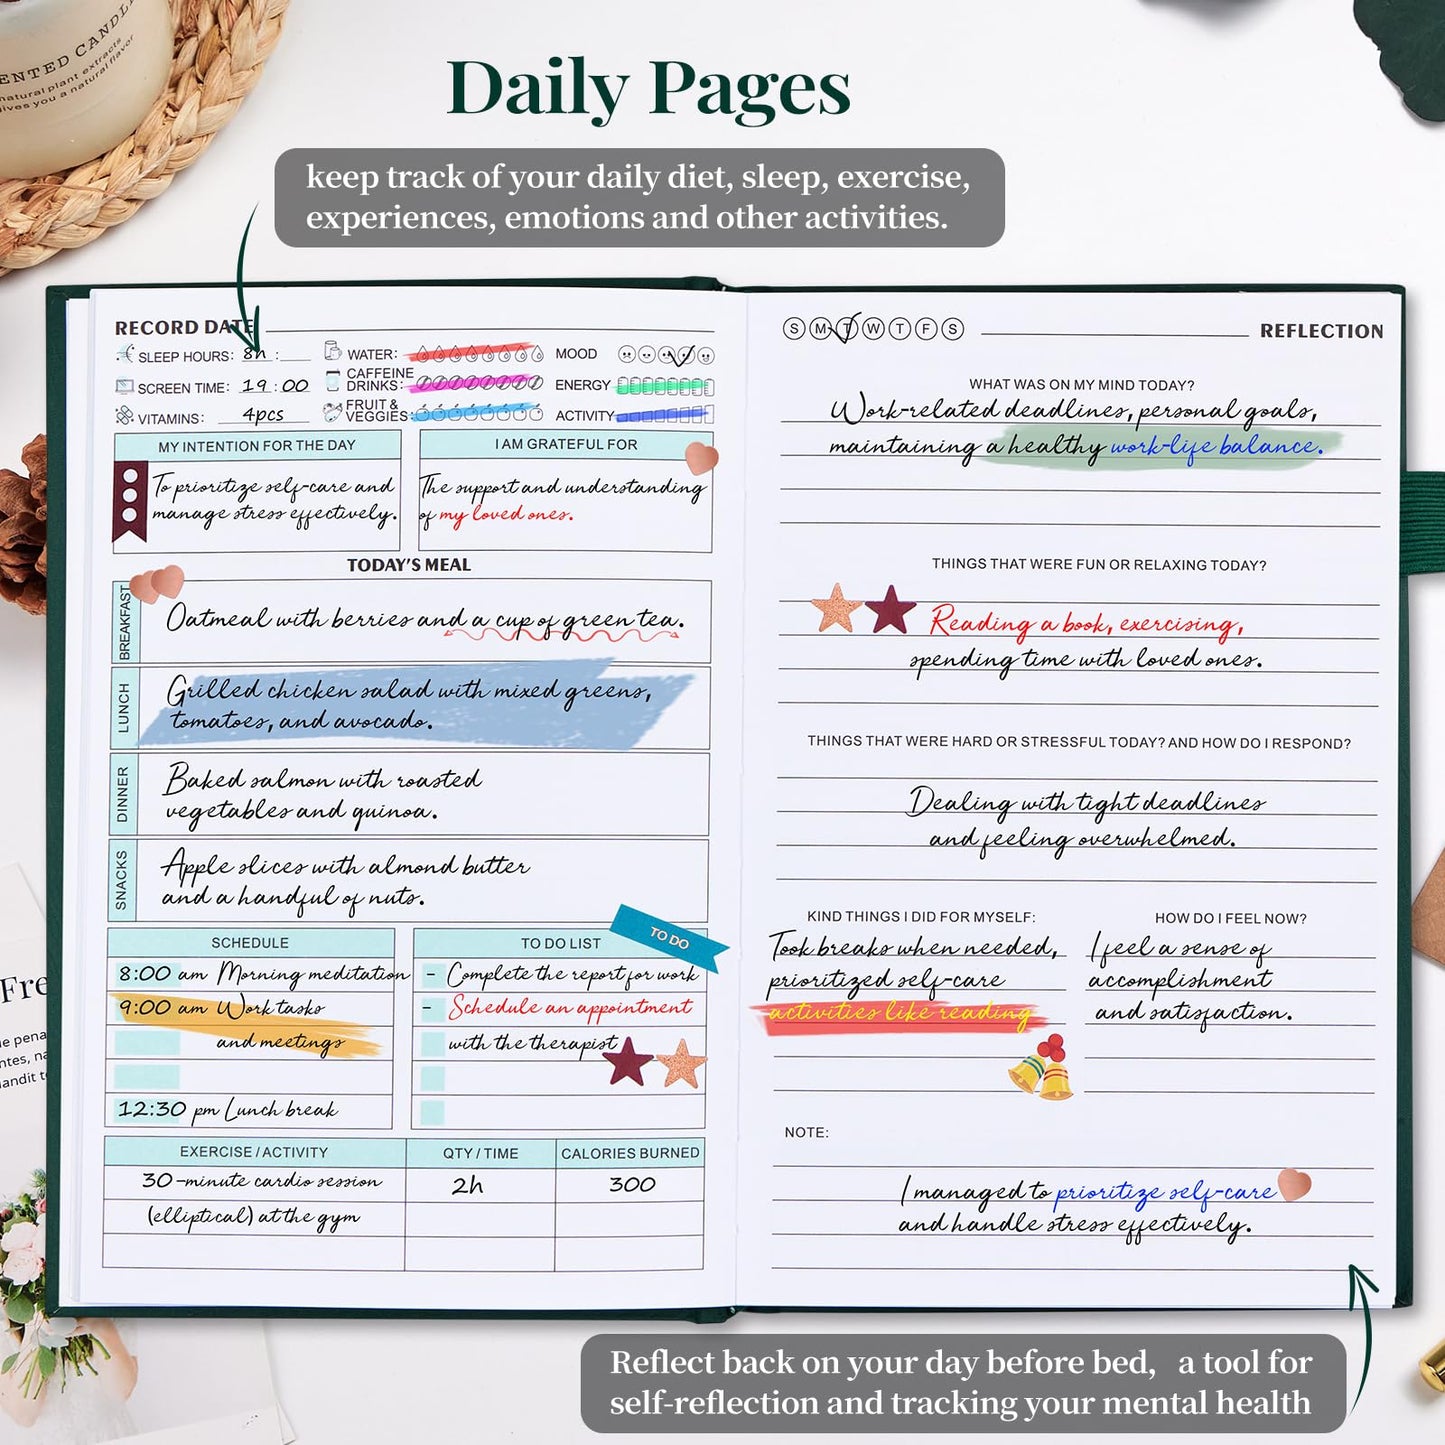 ENTED CANDL
natural plant extracts
ives you a natural flavor
Daily Pages
keep track of your daily diet, sleep, exercise,
experiences, emotions and other activities.
RECORD DATE
SLEEP HOURS: 8h :
WATER:
MOOD
SCREEN TIME: 19:00
CAFFEINE
DRINKS:
ENERGY
VITAMINS: 4pcs
FRUIT &
VEGGIES:
ACTIVITY
MY INTENTION FOR THE DAY
To prioritize self-care and
manage stress effectively.
I AM GRATEFUL FOR
The support and understanding
of my loved ones.
TODAY'S MEAL
BREAKFAST
Oatmeal with berries and a cup of green tea.
LUNCH
Grilled chicken salad with mixed greens,
tomatoes, and avocado.
DINNER
Baked salmon with roasted
vegetables and quinoa.
SNACKS
Apple slices with almond butter
and a handful of nuts.
SCHEDULE
8:00 am Morning meditation
9:00 am Work tasks
and meetings
12:30 pm Lunch break
TO DO LIST
TO DO
- Complete the report for work
- Schedule an appointment
with the therapist
EXERCISE / ACTIVITY
QTY / TIME
CALORIES BURNED
30-minute cardio session
2h
300
(elliptical) at the gym
S M T W T F S
REFLECTION
WHAT WAS ON MY MIND TODAY?
Work-related deadlines, personal goals,
maintaining a healthy work-life balance.
THINGS THAT WERE FUN OR RELAXING TODAY?
Reading a book, exercising,
spending time with loved ones.
THINGS THAT WERE HARD OR STRESSFUL TODAY? AND HOW DO I RESPOND?
Dealing with tight deadlines
and feeling overwhelmed.
KIND THINGS I DID FOR MYSELF:
Took breaks when needed,
prioritized self-care
activities like reading
HOW DO I FEEL NOW?
I feel a sense of
accomplishment
and satisfaction.
NOTE:
I managed to prioritize self-care
and handle stress effectively.
Fre
Reflect back on your day before bed, a tool for
self-reflection and tracking your mental health